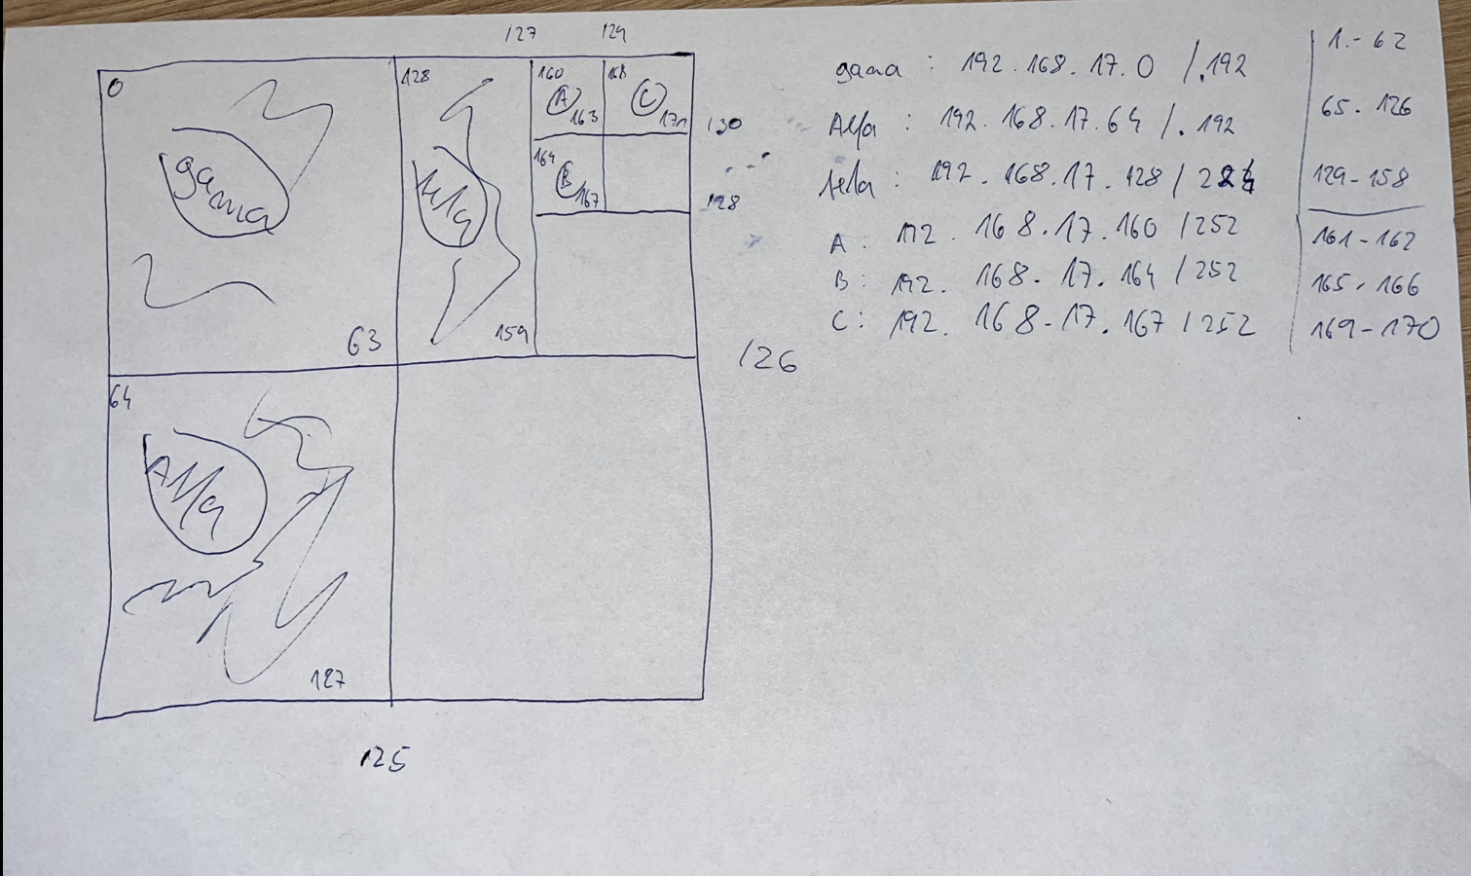 /27 /29
0 128 160 168
A 163 C 171
gama
/30
164
B 167
/28
63 159
/26
64
Alfa
127
/25
gama : 192.168.17.0 /.192
Alfa : 192.168.17.64 /.192
: 192.168.17.128 / 224
A: 192.168.17.160 /252
B: 192.168.17.164 /252
C: 192.168-17.167 /252
1.-62
65.126
129-158
161-162
165-166
169-170